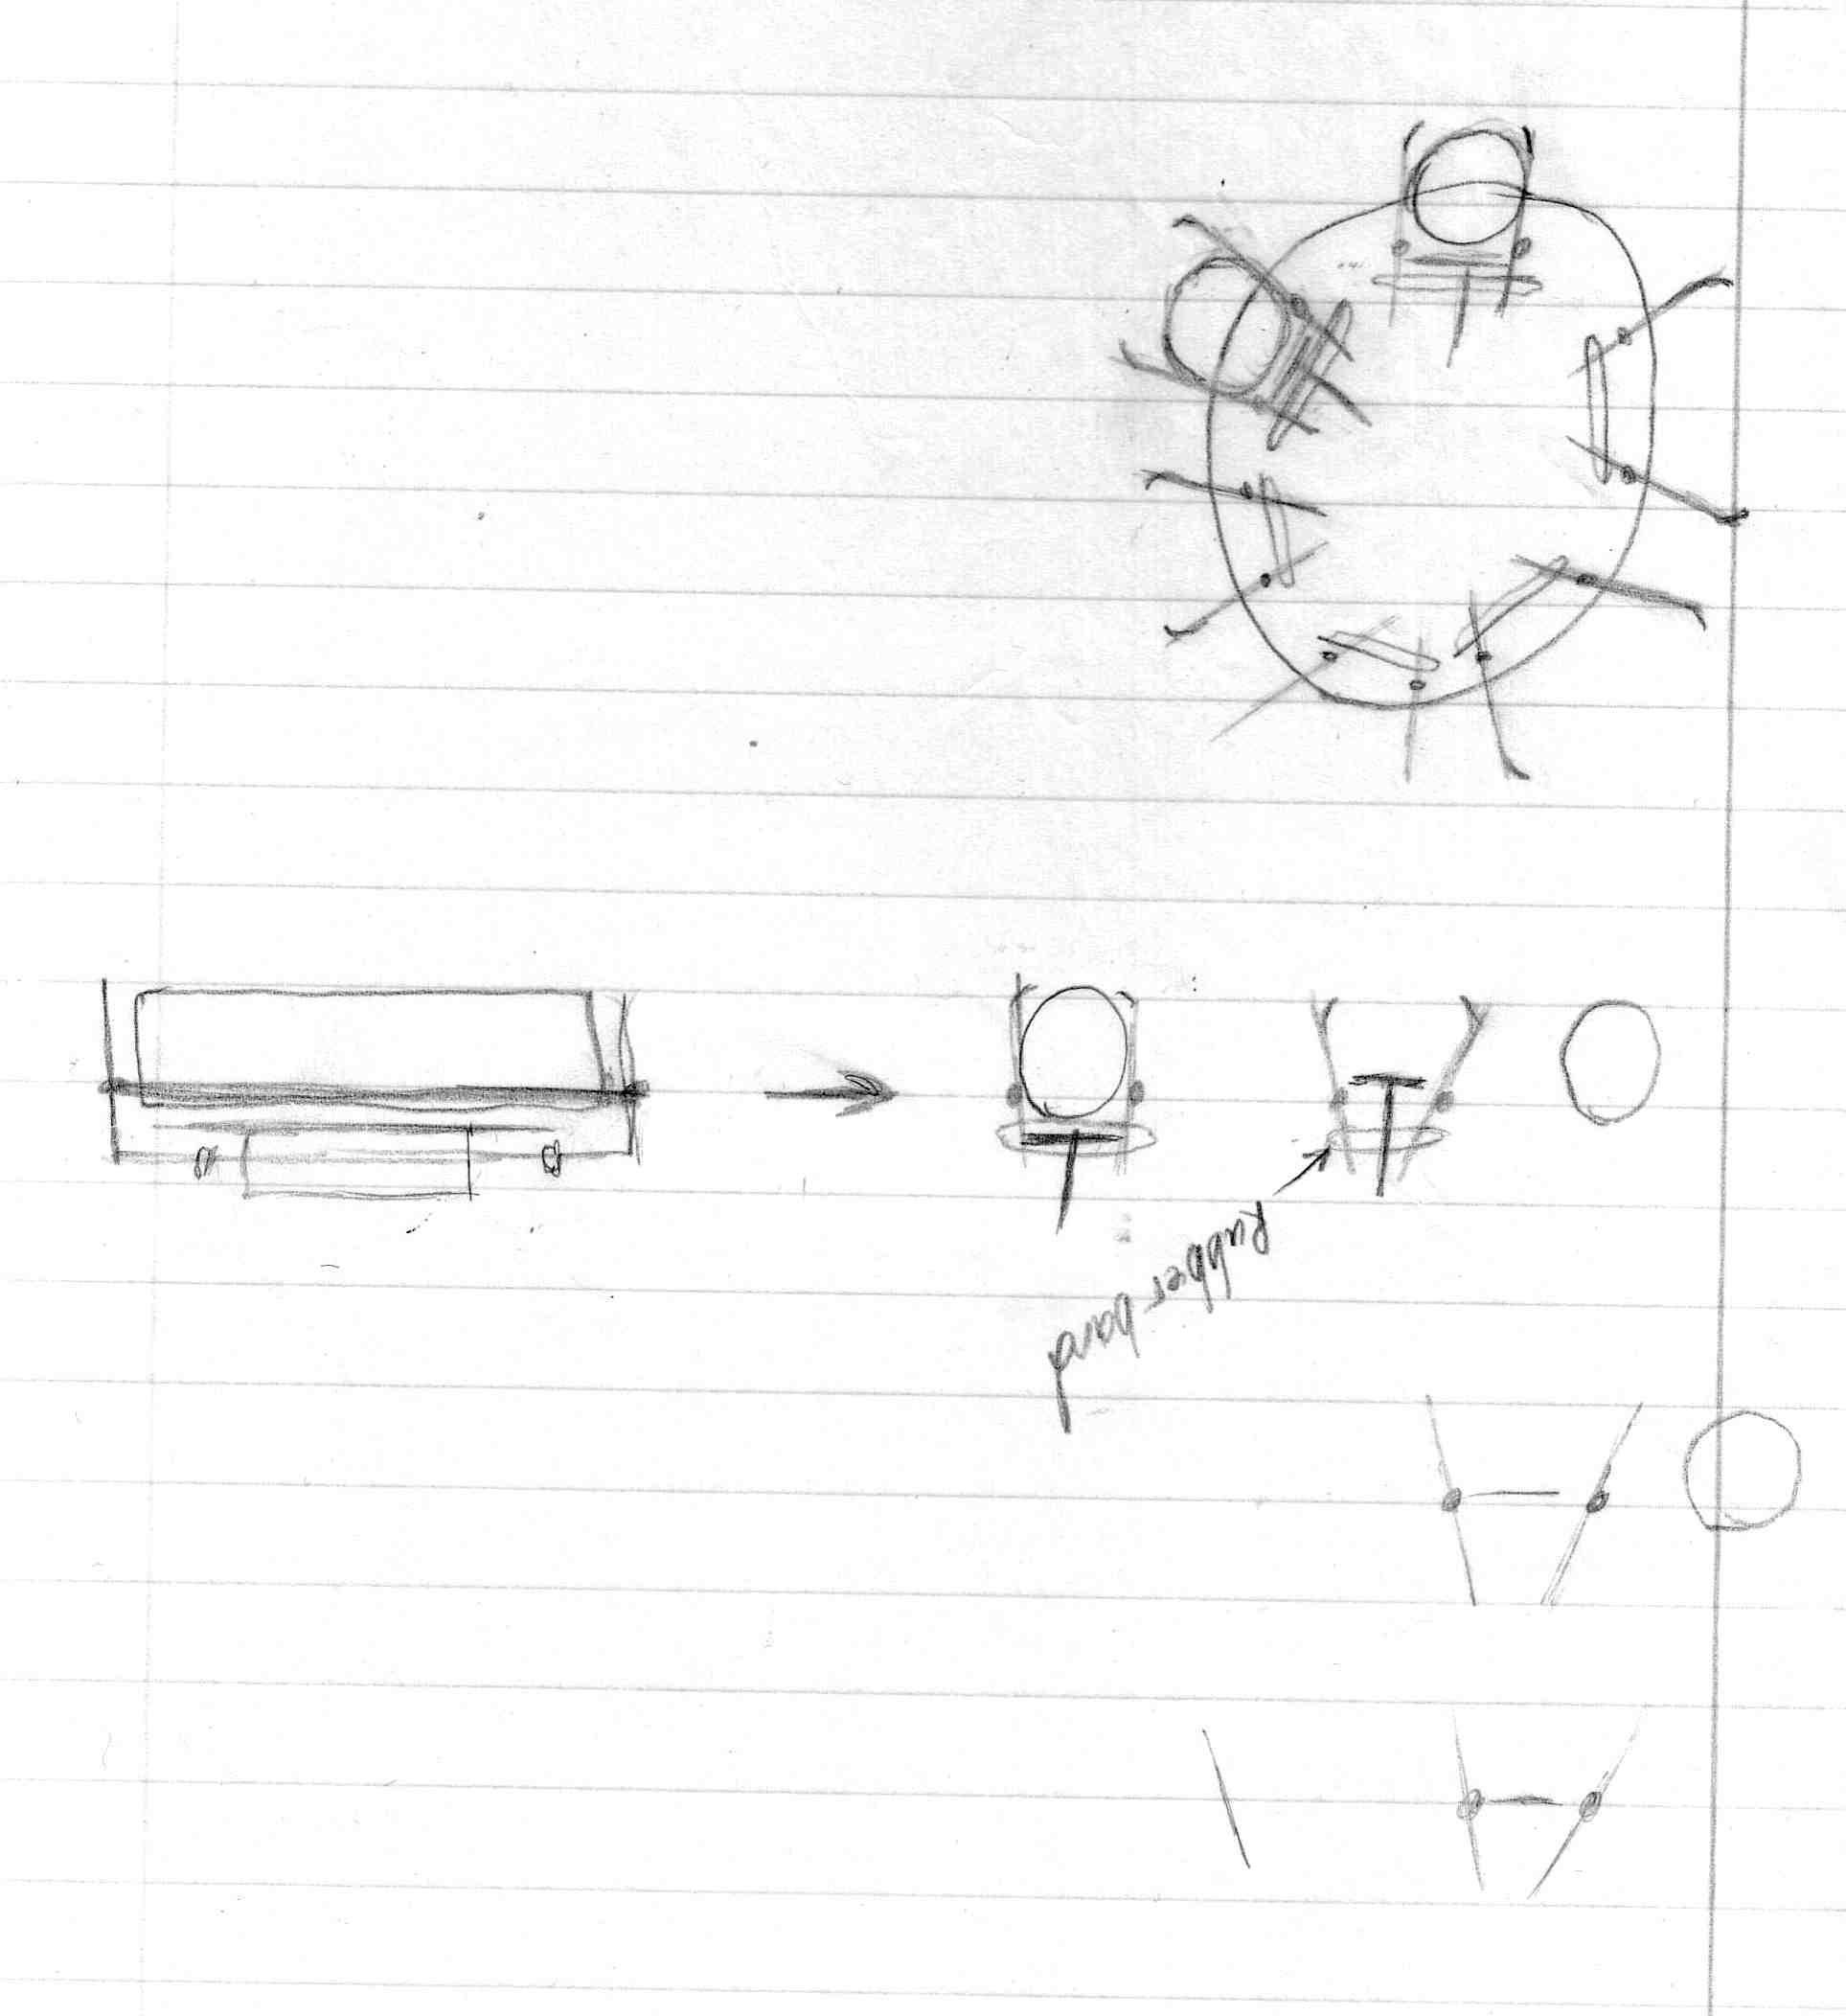 Rubber band